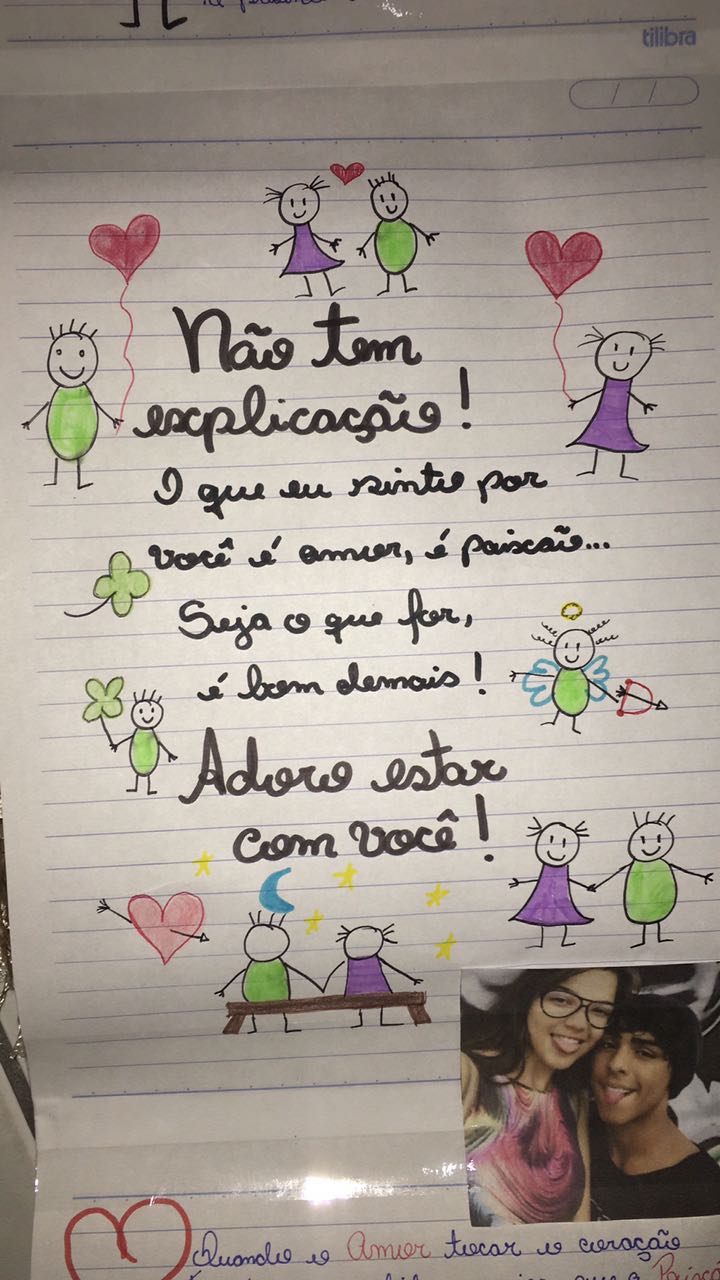 tilibra
/ /
Não tem
explicação!
O que eu sinto por
você é amor, é paixão...
Seja o que for,
é bom demais!
Adoro estar
com você!
Quando o Amor tocar o coração